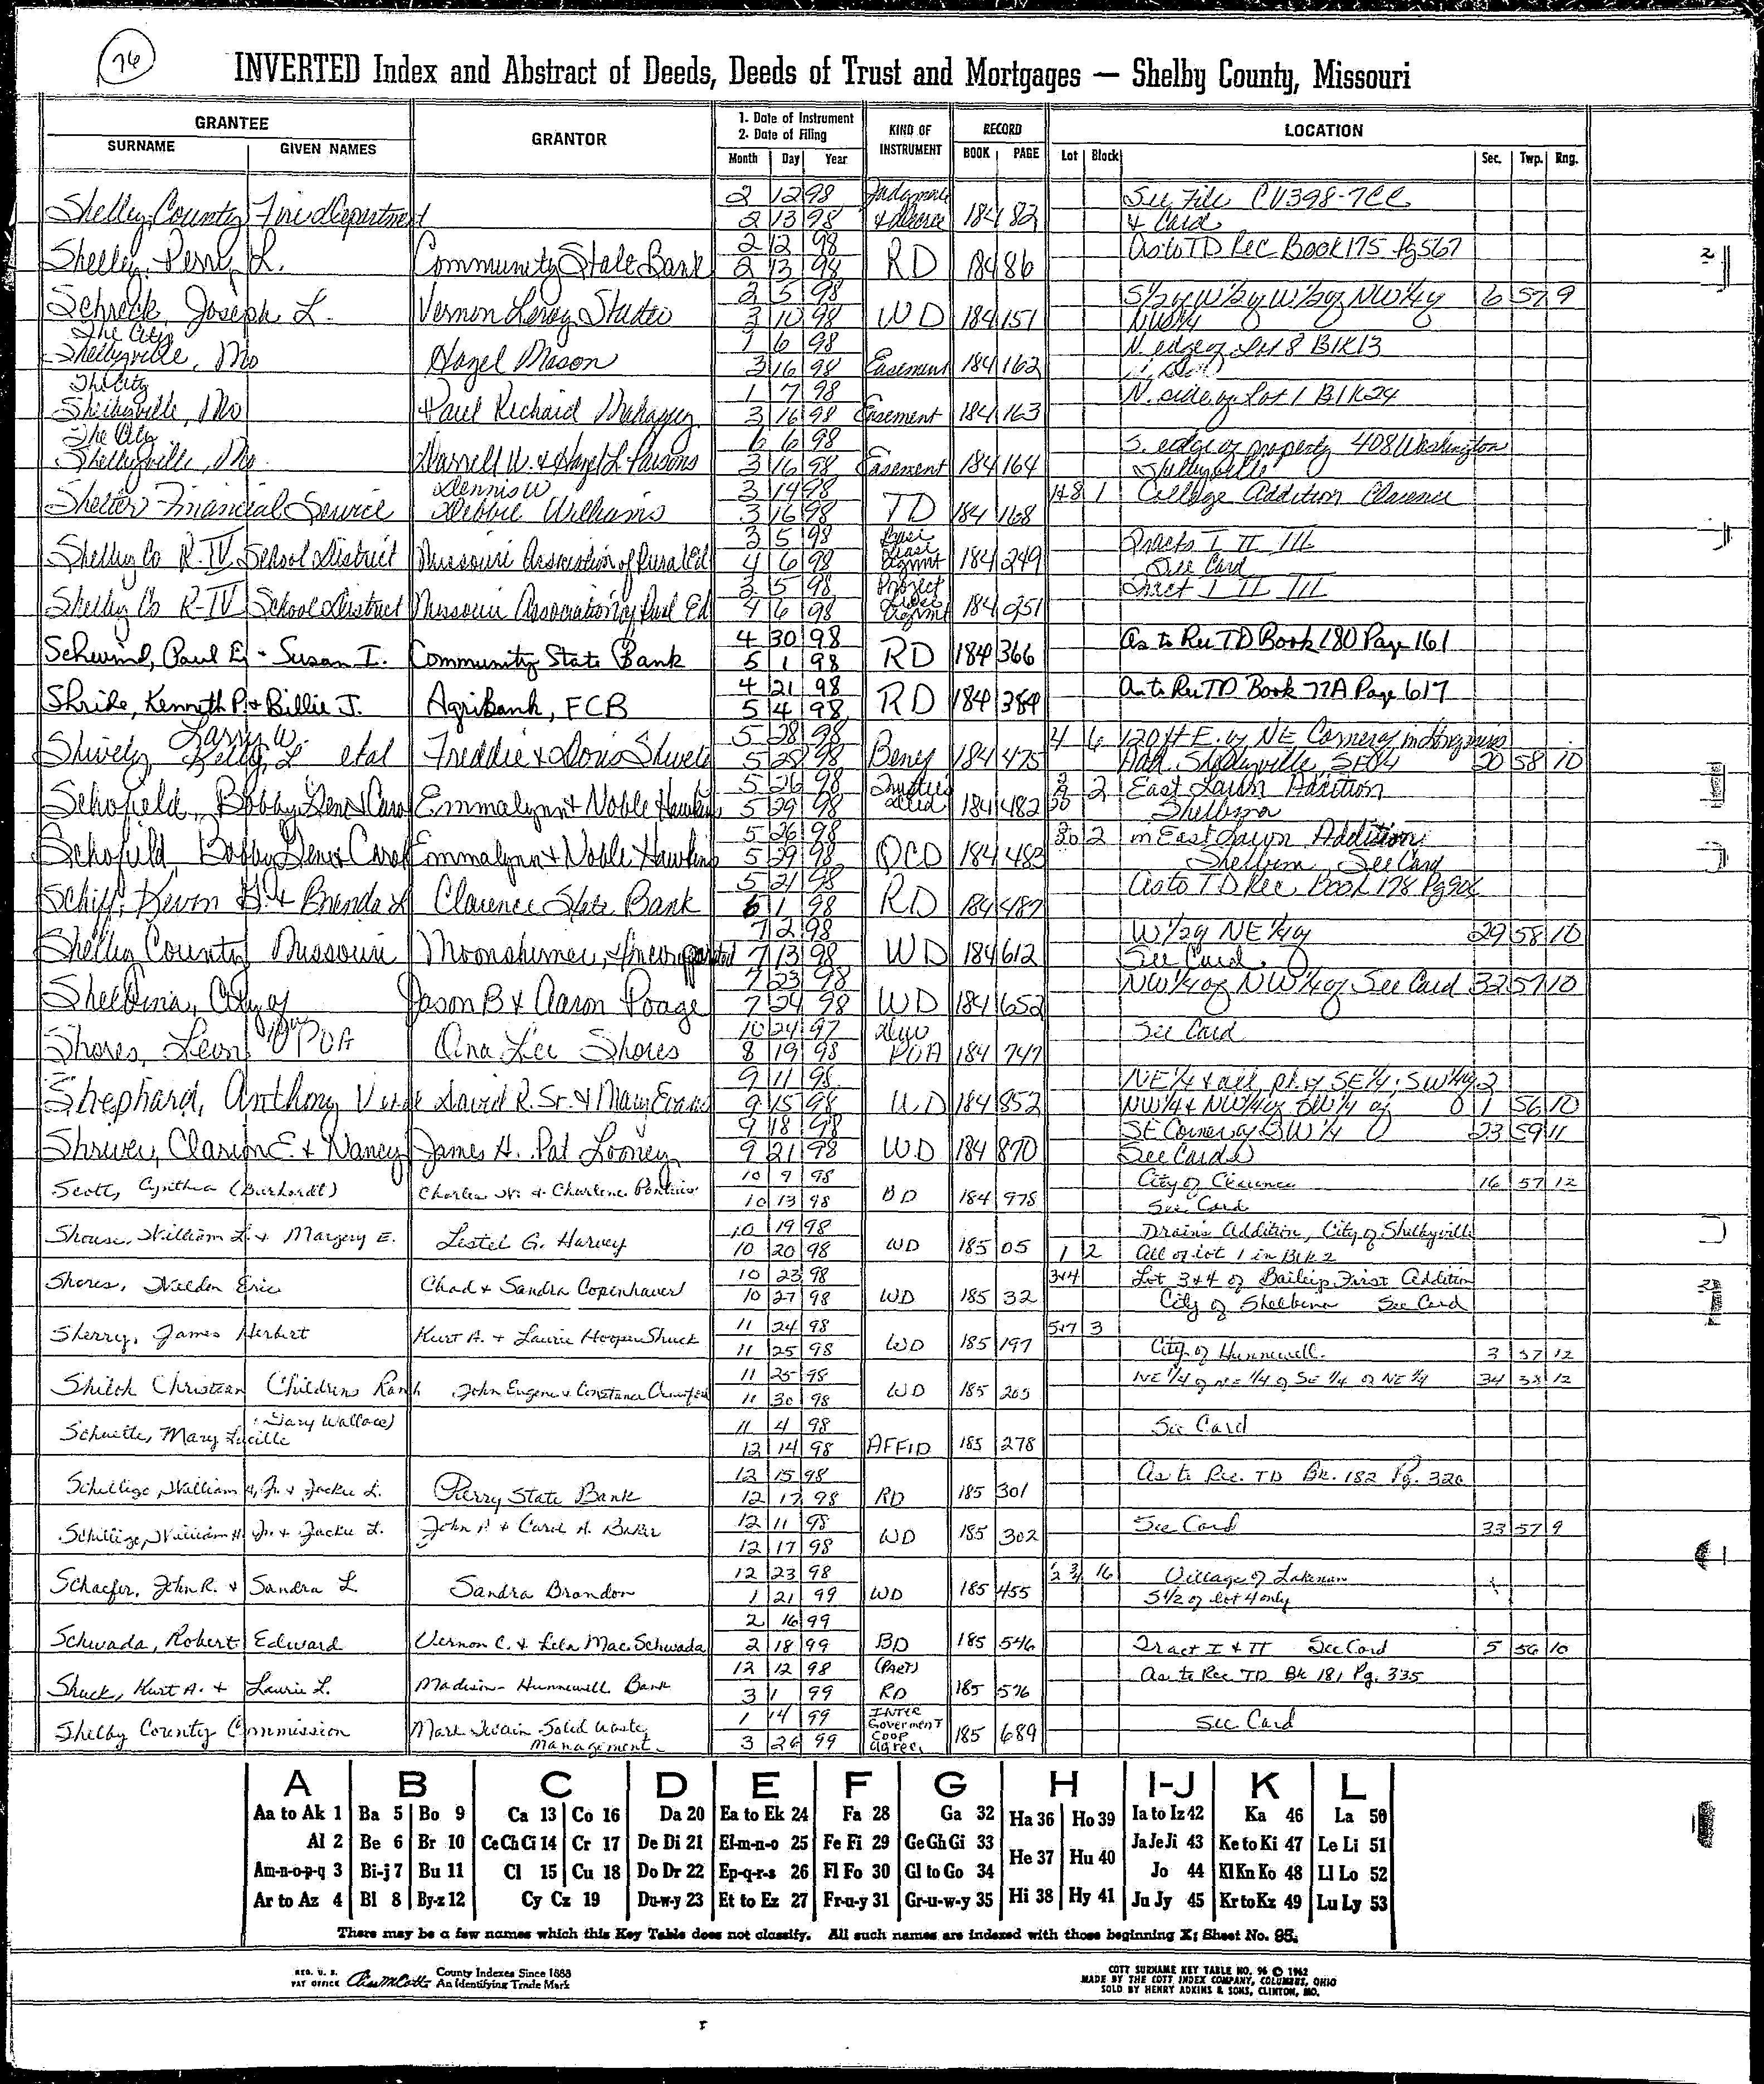 76
INVERTED Index and Abstract of Deeds, Deeds of Trust and Mortgages — Shelby County, Missouri
GRANTEE
SURNAME GIVEN NAMES
GRANTOR
1. Date of Instrument
2. Date of Filing
Month Day Year
KIND OF INSTRUMENT
RECORD
BOOK PAGE
LOCATION
Lot Block Sec. Twp. Rng.
2 12 98 See File CV398-7CC
Shelby County Fire Department 2 13 98 184 82 & Card
2 12 98 As to TD Rec Book 175 Pg 567
Shelley, Perry L. Community State Bank 2 13 98 RD 184 86
2 5 98 S 1/2 of W 1/2 of W 1/2 of NW 1/4 of 6 57 9
Schreck, Joseph L. Vernon Leroy 3 10 98 WD 184 151
The City 1 6 98 N. edge of Lot 8 Blk 13
Shelbyville, Mo Hazel Mason 3 16 98 Easement 184 162
The City 1 7 98 N. side of Lot 1 Blk 24
Shelbyville, Mo Paul Richard 3 16 98 Easement 184 163
The City 6 98 S. edge of property 408 Washington
Shelbyville, Mo. Darrell W. & Hazel L. Parsons 3 16 98 Easement 184 164 Shelbyville
Dennis W 3 14 98 1 College Addition Clarence
Shelter Financial Service Debbie Williams 3 16 98 TD 184 168
3 5 98 Base Tracts I II III
Shelby Co R-IV School District Missouri Association of Rural Ed 4 6 98 Lease Agrmt 184 249 See Card
3 5 98 Project Tract I II III
Shelby Co R-IV School District Missouri Association of Rural Ed 4 6 98 Agrmt 184 251
4 30 98 As to Rec TD Book 180 Page 161
Schwind, Paul E. - Susan I. Community State Bank 5 1 98 RD 184 366
4 21 98 As to Rec TD Book 77A Page 617
Kenneth P. & Billie J. Agribank, FCB 5 4 98 RD 184 384
Larry W. 5 28 98 4 6 120 ft E. of NE Corner of
Shively Kelly L etal Freddie & Doris Shively 5 28 98 Beney 184 475 Add. Shelbyville 20 58 10
5 26 98 Trustees 2 East Lawn Addition
Schofield, Bobby Gene & Carol Emmalynn & Noble Hawkins 5 29 98 Deed 184 482 Shelbina
5 26 98 2 in East Lawn Addition
Schofield, Bobby Gene & Carol Emmalynn & Noble Hawkins 5 29 98 QCD 184 483 Shelbina See Card
5 21 98 As to TD Rec Book 178 Pg 906
Schiff, Kevin & Brenda L Clarence State Bank 6 1 98 RD 184 487
7 2 98 W 1/2 of NE 1/4 of 29 58 10
Shelby County Missouri Moonshiners, Incorporated 7 13 98 WD 184 612 See Card
7 23 98 NW 1/4 of NW 1/4 of See Card 32 57 10
Shelbina, City of Jason B & Aaron Poage 7 24 98 WD 184 652
10 24 97 See Card
Shores, Leon POA Ona Lee Shores 8 19 98 POA 184 747
9 11 98 NE 1/4 & all pt of SE 1/4; SW 1/4 of 2
Shephard, Anthony David R. Sr. & Mary Evans 9 15 98 WD 184 852 NW 1/4 & NW 1/4 of SW 1/4 of 1 56 10
9 18 98 SE Corner of SW 1/4 23 59 11
Shriver, Clarion E & Nancy James H. Pat Looney 9 21 98 WD 184 870 See Card
10 9 98 City of Clarence 16 57 12
Scott, Cynthia (Burkhardt) Charles W. & Charlene Pontius 10 13 98 BD 184 978 See Card
10 19 98 Drains Addition, City of Shelbyville
Shouse, William L. & Margery E. Lestel G. Harvey 10 20 98 WD 185 05 1 2 All of lot 1 in Blk 2
10 23 98 3+4 Lot 3&4 of Baileys First Addition
Shores, Weldon Eric Chad & Sandra Copenhaver 10 27 98 WD 185 32 City of Shelbina See Card
11 24 98 5+7 3
Sherry, James Herbert Kurt A. & Laurie Hooper Shuck 11 25 98 WD 185 197 City of Hunnewell. 3 57 12
11 25 98 NE 1/4 of NE 1/4 of SE 1/4 of NE 1/4 34 58 12
Shiloh Christian Childrens Ranch John Eugene & Constance Crawford 11 30 98 WD 185 205
(Gary Wallace) 11 4 98 See Card
Schuette, Mary Lucille 12 14 98 AFFID 185 278
12 15 98 As to Rec. TD Bk. 182 Pg. 320
Schillige, William H. Jr. & Jackie L. Perry State Bank 12 17 98 RD 185 301
Schillige, William H. Jr. & Jackie L. John P. & Carol A. Baker 12 11 98 WD 185 302 See Card 33 57 9
12 17 98
12 23 98 16 Village of Lakenan
Schaefer, John R. & Sandra L Sandra Brandon 1 21 99 WD 185 455 S 1/2 of lot 4 only
2 16 99
Schwada, Robert Edward Vernon C. & Lela Mae Schwada 2 18 99 BD 185 546 Tract I & II See Card 5 56 10
12 12 98 (PART) As to Rec TD Bk 181 Pg. 335
Shuck, Kurt A. & Laurie L. Madison-Hunnewell Bank 3 1 99 RD 185 576
1 14 99 INTER Goverment See Card
Shelby County Commission Mark Twain Solid Waste Management 3 26 99 COOP Agree. 185 689
A B C D E F G H I-J K L
Aa to Ak 1 Ba 5 Bo 9 Ca 13 Co 16 Da 20 Ea to Ek 24 Fa 28 Ga 32 Ha 36 Ho 39 Ia to Iz 42 Ka 46 La 50
Al 2 Be 6 Br 10 Ce Ch Ci 14 Cr 17 De Di 21 El-m-n-o 25 Fe Fi 29 Ge Gh Gi 33 He 37 Hu 40 Ja Je Ji 43 Ke to Ki 47 Le Li 51
Am-n-o-p-q 3 Bi-j 7 Bu 11 Cl 15 Cu 18 Do Dr 22 Ep-q-r-s 26 Fl Fo 30 Gl to Go 34 Jo 44 Kl Kn Ko 48 Ll Lo 52
Ar to Az 4 Bl 8 By-z 12 Cy Cz 19 Du-w-y 23 Et to Ez 27 Fr-u-y 31 Gr-u-w-y 35 Hi 38 Hy 41 Ju Jy 45 Kr to Kz 49 Lu Ly 53
There may be a few names which this Key Table does not classify. All such names are indexed with those beginning X; Sheet No. 95.
REG. U. S. PAT OFFICE County Indexes Since 1888
An Identifying Trade Mark
COTT SURNAME KEY TABLE NO. 96 © 1962
MADE BY THE COTT INDEX COMPANY, COLUMBUS, OHIO
SOLD BY HENRY ADKINS & SONS, CLINTON, MO.